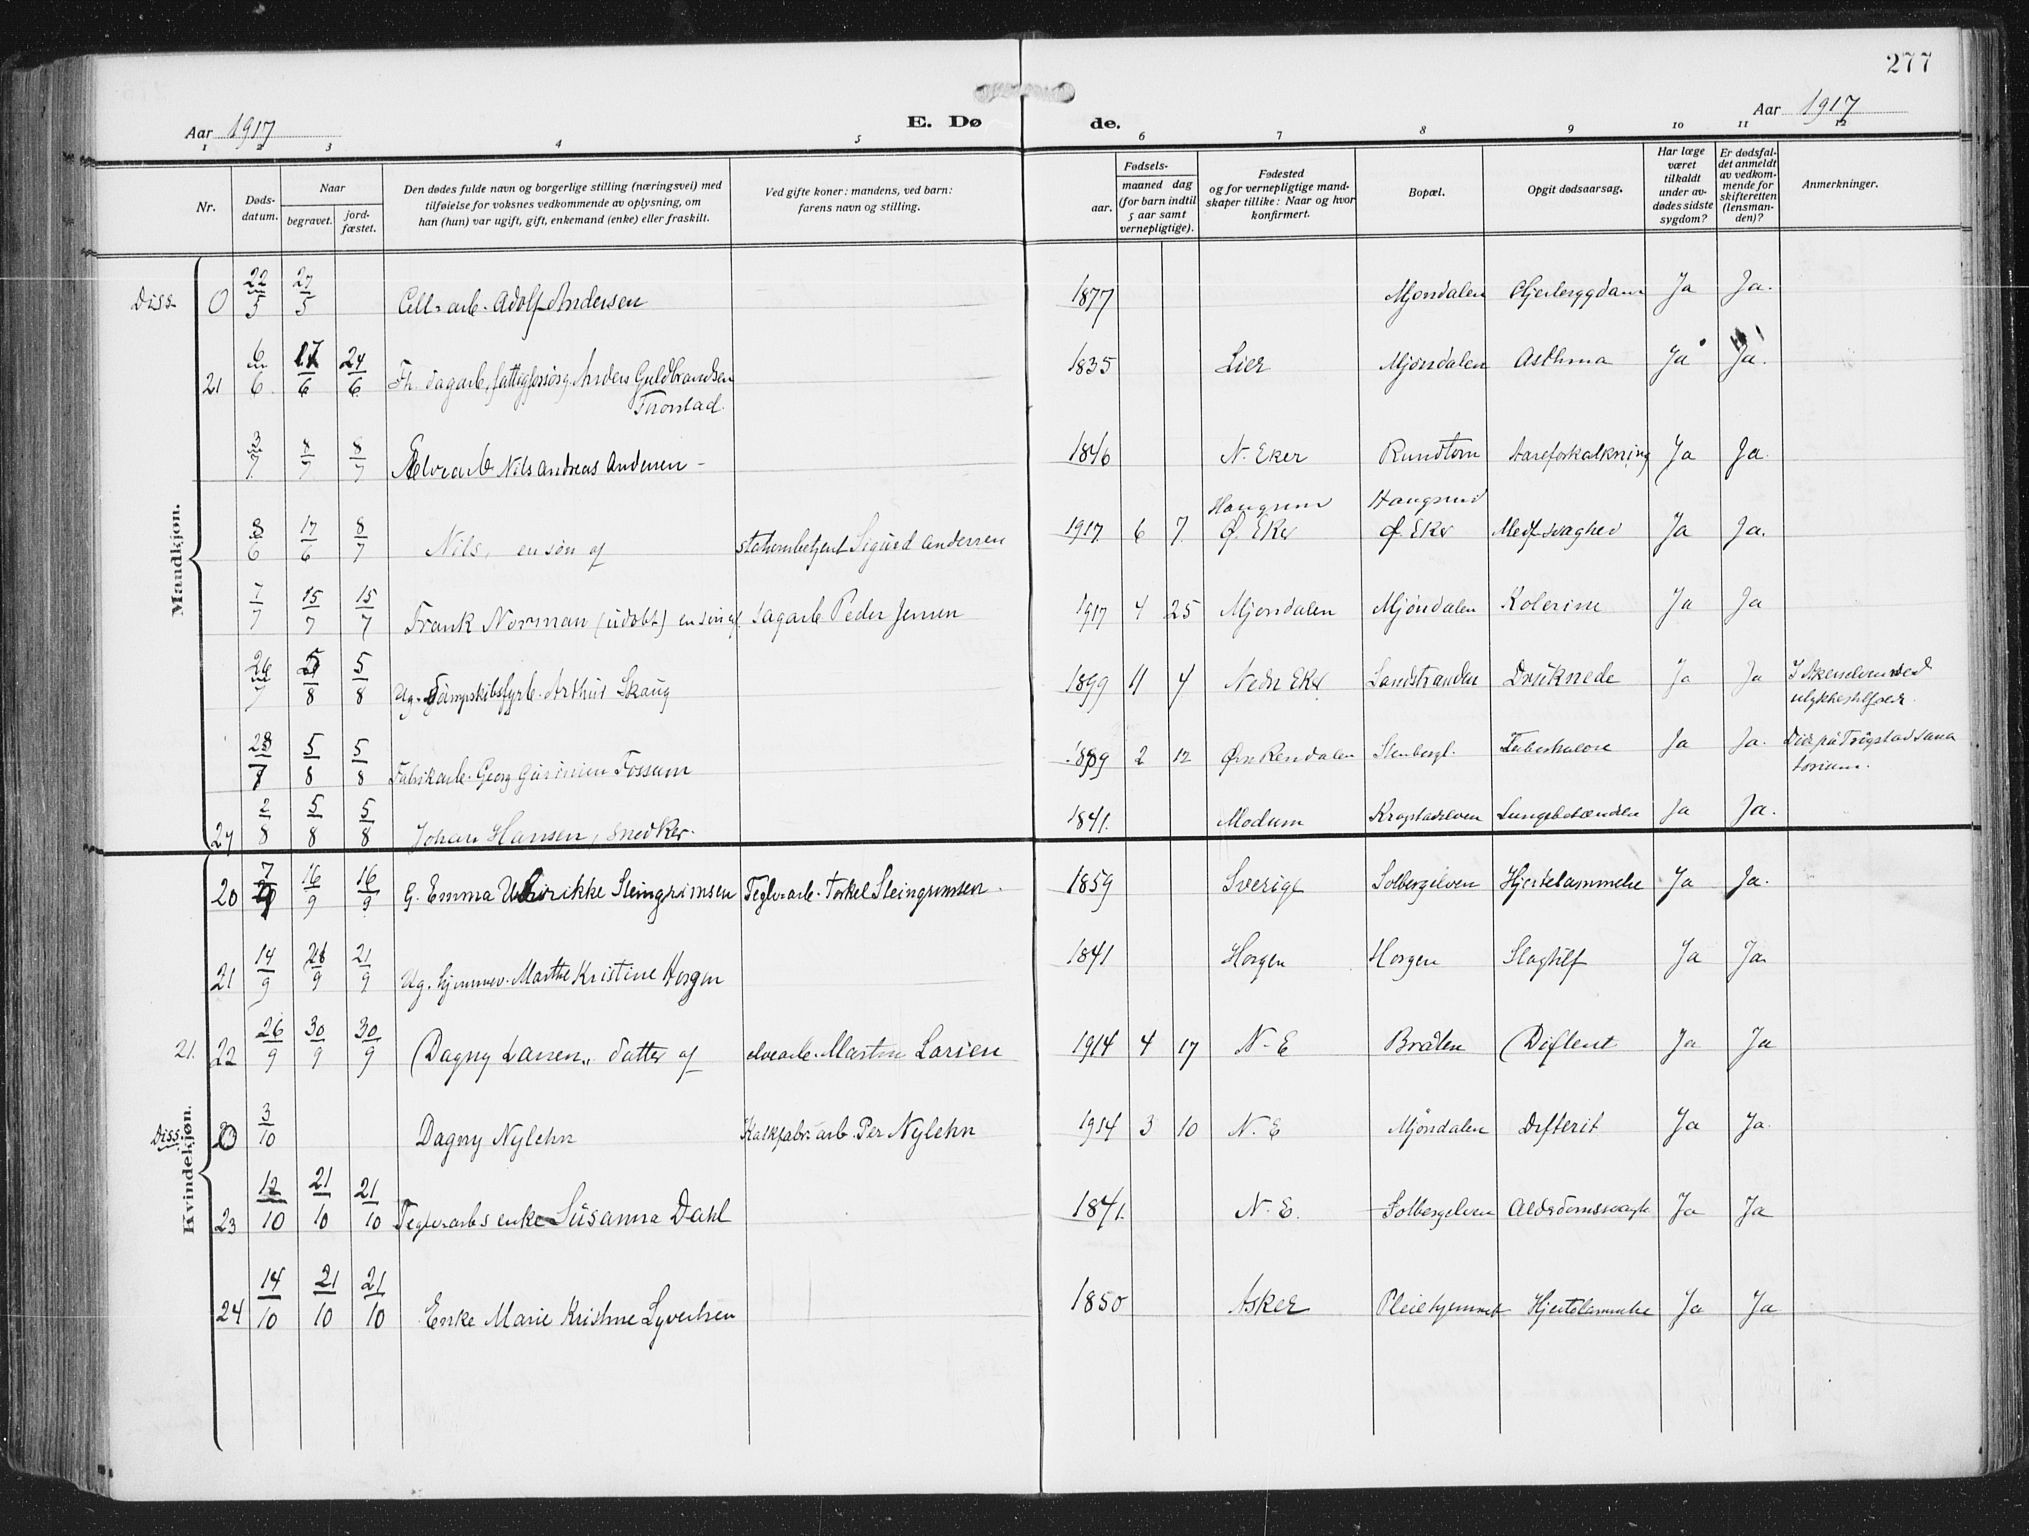 277
Aar 1917
E. Dø
de.
Aar 1917
1 2 3 4 5 6 7 8 9 10 11 12
Nr.
Døds-
datum.
Naar
begravet.
jord-
fæstet.
Den dødes fulde navn og borgerlige stilling (næringsvei) med
tilføielse for voksnes vedkommende av oplysning, om
han (hun) var ugift, gift, enkemand (enke) eller fraskilt.
Ved gifte koner: mandens, ved barn:
farens navn og stilling.
Fødsels-
aar.
maaned dag
(for barn indtil
5 aar samt
vernepligtige).
Fødested
og for vernepligtige mand-
skaper tillike: Naar og hvor
konfirmert.
Bopæl.
Opgit dødsaarsag.
Har læge
været
tilkaldt
under av-
dødes sidste
sygdom?
Er dødsfal-
det anmeldt
av vedkom-
mende for
skifteretten
(lensman-
den)?
Anmerkninger.
Mandkjøn.
Diss. 0 22/5 27/5 Cell. arb. Adolf Andersen 1877 Mjøndalen Ja Ja.
21 6/6 17/6 24/6 Fh. dagarb. fattigforsørg. Anders Guldbrandsen 1835 Lier Mjøndalen Asthma Ja Ja.
3/7 8/7 8/7 Elvearb Nils Andreas Andersen - 1846 N. Eker Rundtom Aareforkalkning Ja Ja.
Haugsund Haugsund
8/6 17/6 8/7 Nils, en søn af stationsbetjent Sigurd Andersen 1917 6 7 Ø. Eker Ø. Eker Medf. svaghed Ja Ja.
7/7 15/7 15/7 Frank Norman (udøbt) en søn af sagarb Peder Jensen 1917 4 25 Mjøndalen Mjøndalen Kolerine Ja Ja
26/7 5/8 5/8 Ug. Dampskibsfyrb. Arthur Skaug 1899 11 4 Nedr Eker Landstranden Druknede Ja Ja I Akerselven ved
ulykkestilfælde.
28/7 5/8 5/8 Fabrikarb. Georg Fossum 2 12 Stenbergl. Tuberkulose Ja Ja. Død på Trøgstad Sana
torium.
27 2/8 5/8 5/8 Johan Hansen, snedker. 1841. Modum Krogstadelven Lungebetændelse Ja Ja.
Kvindekjøn.
20 7/9 16/9 16/9 G. Emma Ulrikke Steingrimsen Teglverarb. Torkel Steingrimsen. 1859 Sverige Solbergelven Hjertelammelse Ja Ja.
21 14/9 21/9 21/9 Ug. hjemmev. Marthe Kristine Horgen 1841 Horgen Horgen Slagtilf Ja Ja.
21. 22 26/9 30/9 30/9 Dagny Larsen, datter af elvearb. Martin Larsen 1914 4 17 N. E Bråten Difterit Ja Ja
Diss. 0 3/10 Dagny Nylehn Kalkfabr. arb. Per Nylehn 1914 3 10 N. E Mjøndalen Difterit Ja Ja.
23 12/10 21/10 21/10 Teglverarbs enke Susanna Dahl 1841. N. E. Solbergelven Alderdomssvagh Ja Ja
24 14/10 21/10 21/10 Enke Marie Kristine Syvertsen 1850 Asker Pleiehjemmet Hjertelammelse Ja Ja